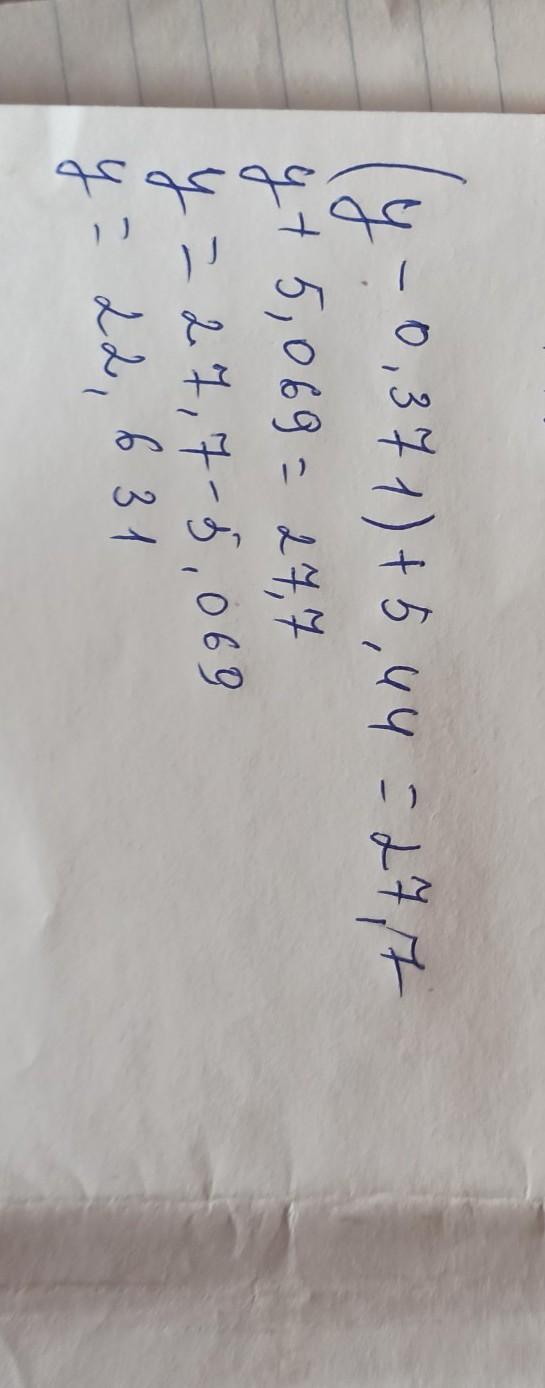 (y - 0,371) + 5,44 = 27,7
y + 5,069 = 27,7
y = 27,7 - 5,069
y = 22,631